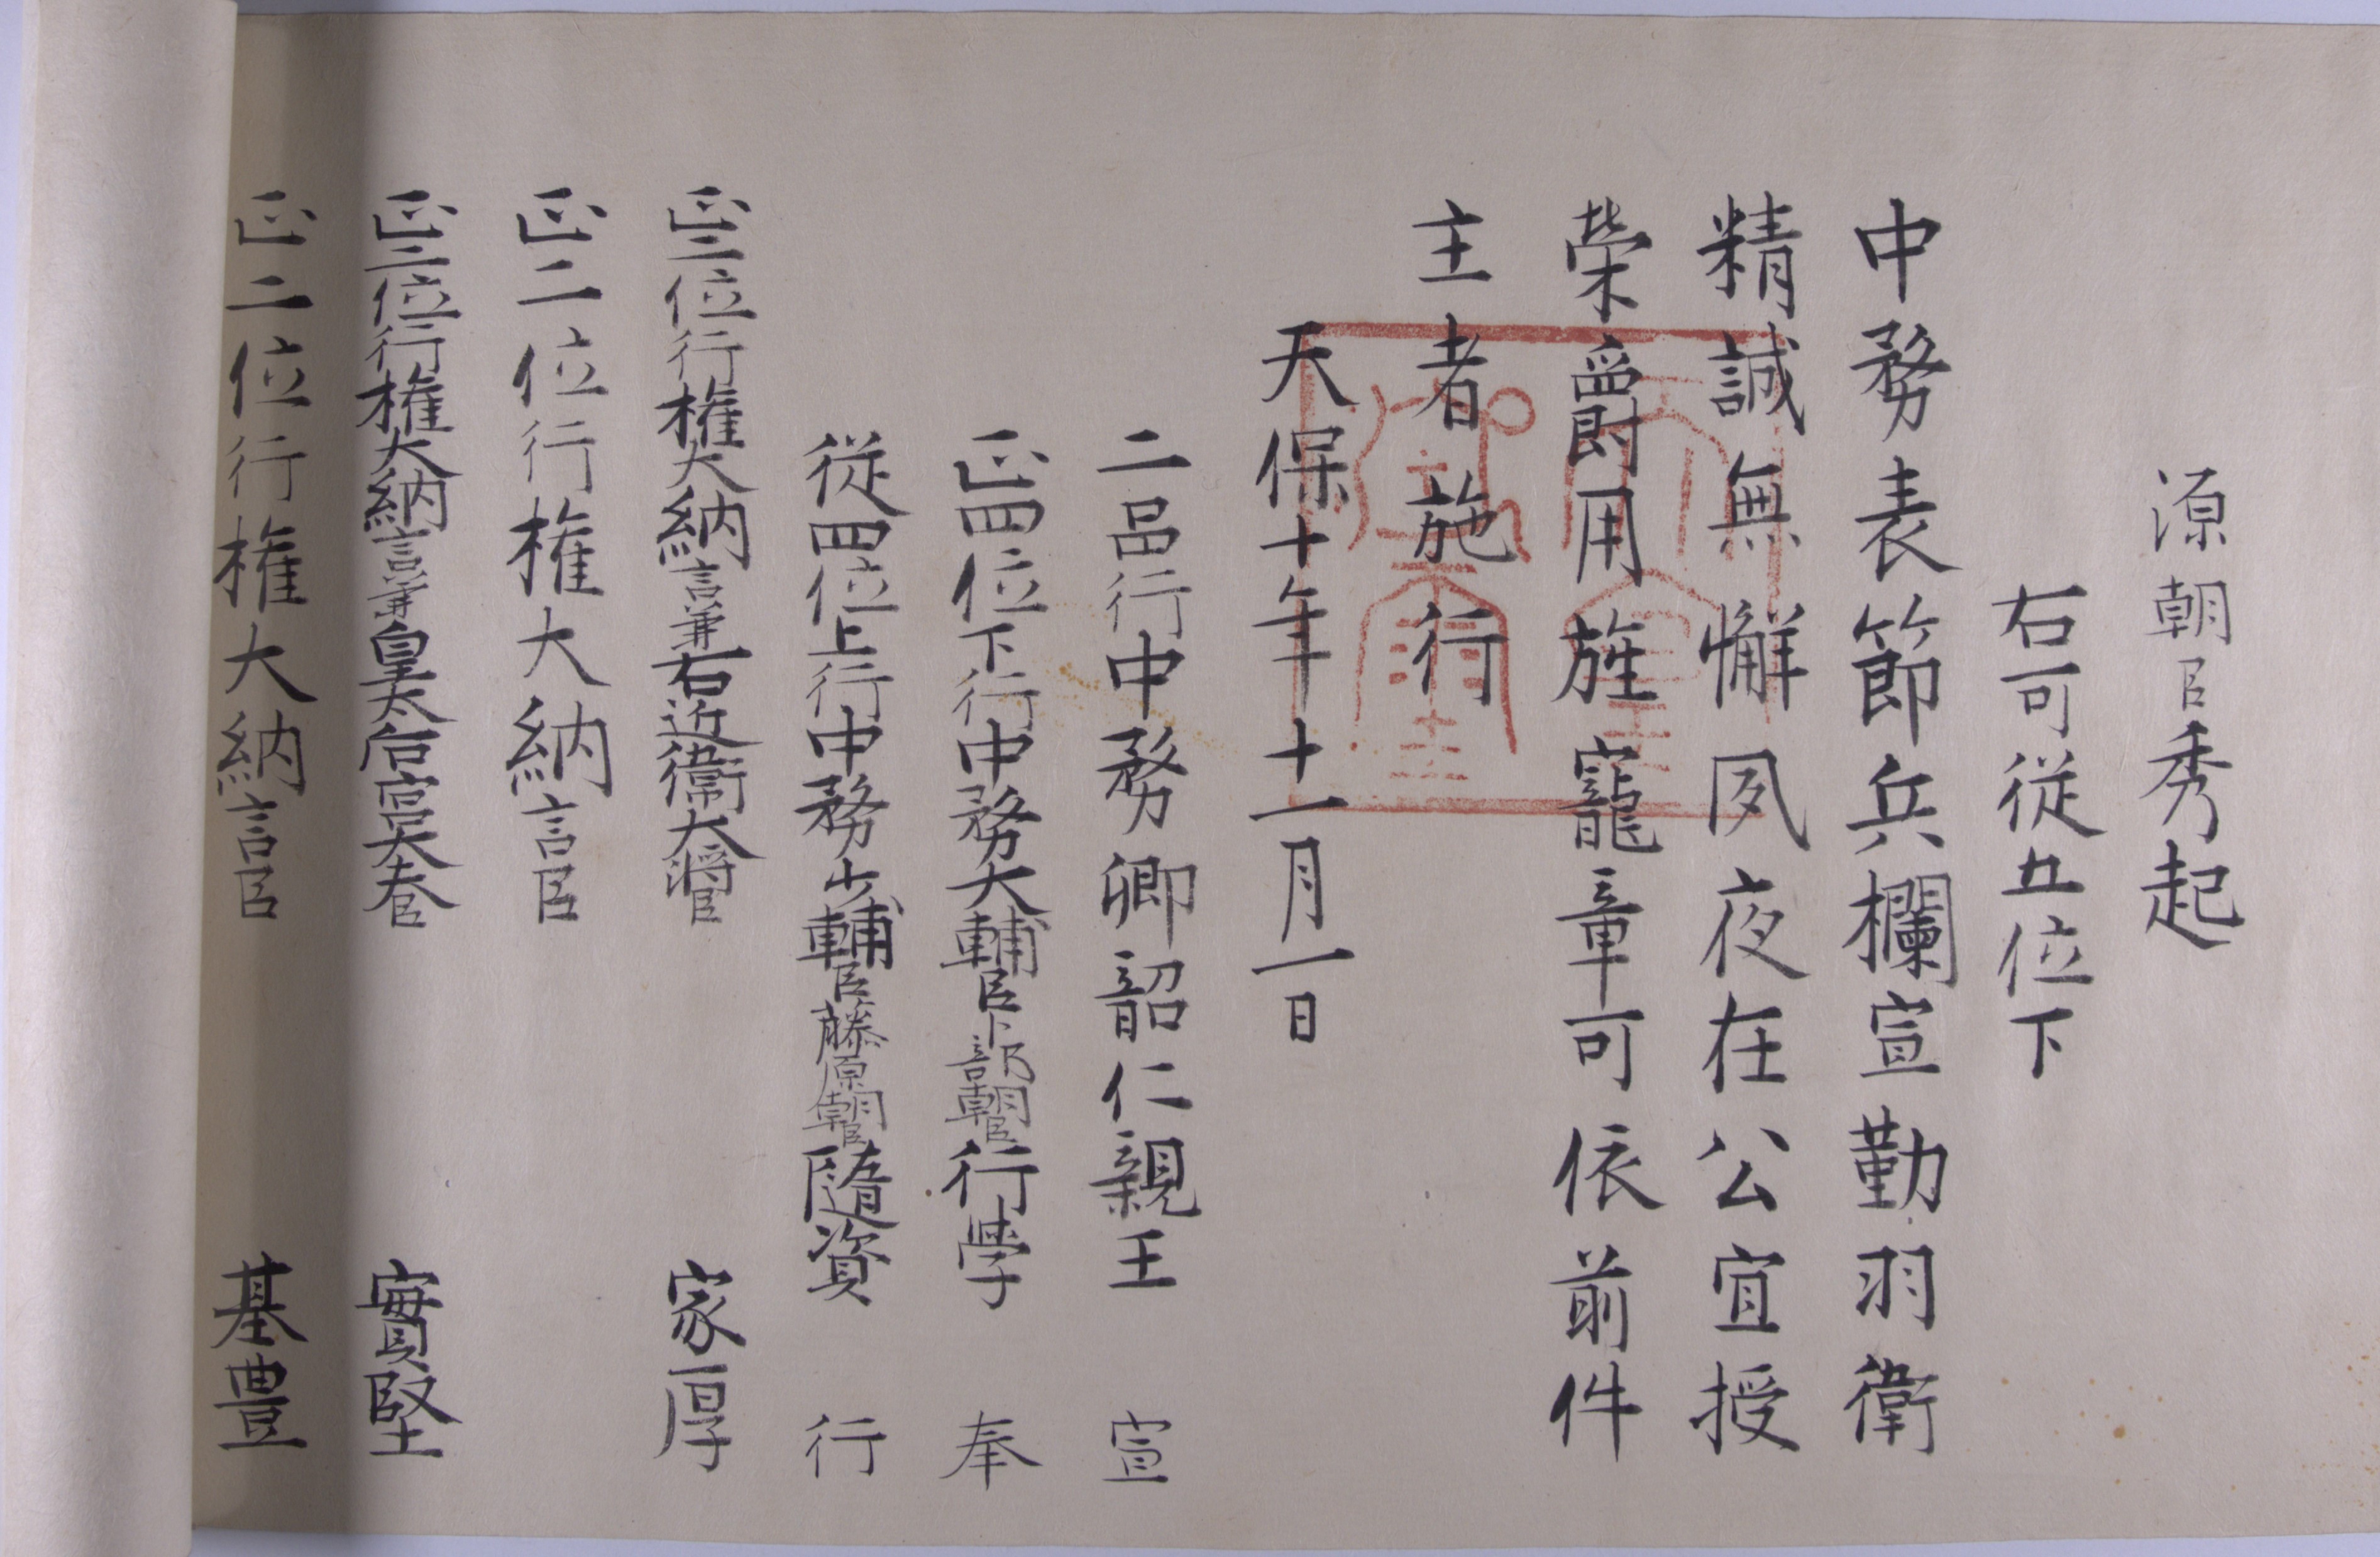 源朝臣秀起
右可従五位下
中務表節兵欄宣勤羽衛
精誠無懈夙夜在公宜授
榮爵用旌寵章可依前件
主者施行
天保十年十一月一日
二品行中務卿韶仁親王 宣
正四位下行中務大輔臣卜部朝臣行學 奉
従四位上行中務少輔臣藤原朝臣隨資 行
正二位行權大納言兼右近衛大将臣 家厚
正二位行權大納言臣
正二位行權大納言兼皇太后宮大夫臣 實堅
正二位行權大納言臣 基豊